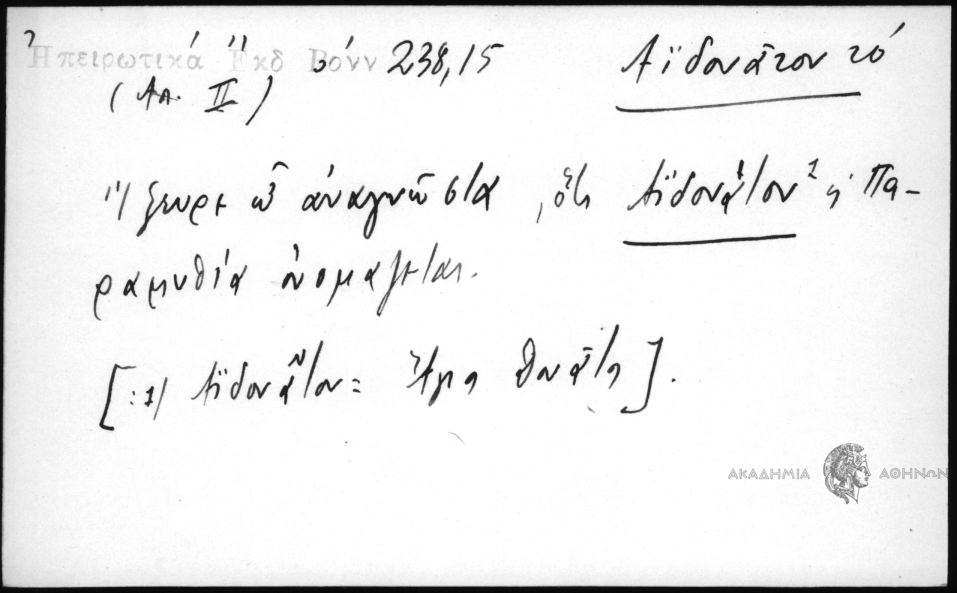 Ἠπειρωτικά Ἔκδ Βόνν 238,15 Ἀϊδονᾶτον τό
(Απ. II)
Ἤξευρε ὦ ἀναγνῶστα, ὅτι Ἀϊδονᾶτον¹ ἡ Πα-
ραμυθία ὀνομάζεται.
[:1) Ἀϊδονᾶτον =
ΑΚΑΔΗΜΙΑ ΑΘΗΝΩΝ